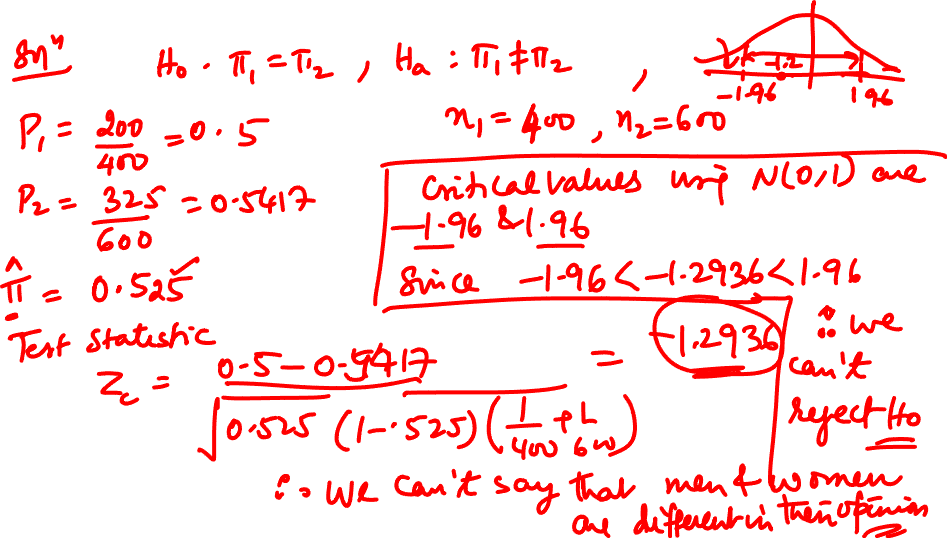 Soln H₀ : π₁ = π₂ , Hₐ : π₁ ≠ π₂ ,
-1.96 -1.2 1.96
P₁ = 200/400 = 0.5 n₁ = 400 , n₂ = 600
P₂ = 325/600 = 0.5417
Critical values using N(0,1) are
-1.96 & 1.96
Since -1.96 < -1.2936 < 1.96
π̂ = 0.525
Test statistic
Z_c = (0.5 - 0.5417) / √(0.525 (1-.525) (1/400 + 1/600)) = -1.2936
∴ we
can't
reject H₀
∴ We can't say that men & women
are different in their opinion